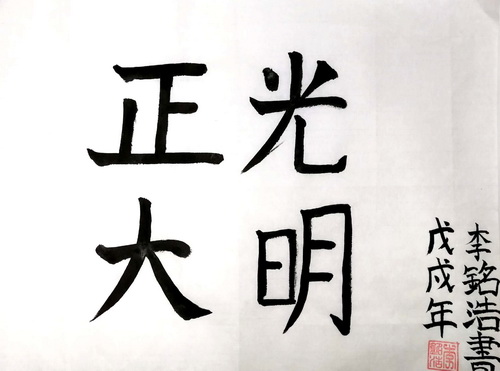 光明
正大
李銘浩書
戊戌年